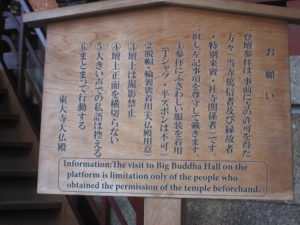 お願い
…登壇参拝は、事前に寺の許可を得た
方々（当寺篤信者及び縁故者
・特別来賓・社寺関係者）です。
…但し、左記事項を遵守して戴きます
①参拝にふさわしい服装を着用
（Tシャツ・半ズボンは不可）
②脱帽・輪袈裟着用（大仏殿用意）
③壇上は撮影禁止
④壇上正面を横切らない
⑤大きい声での私語は控える
⑥まとまって行動する
東大寺大仏殿
Information:The visit to Big Buddha Hall on the
platform is limitation only of the people who
obtained the permission of the temple beforehand.